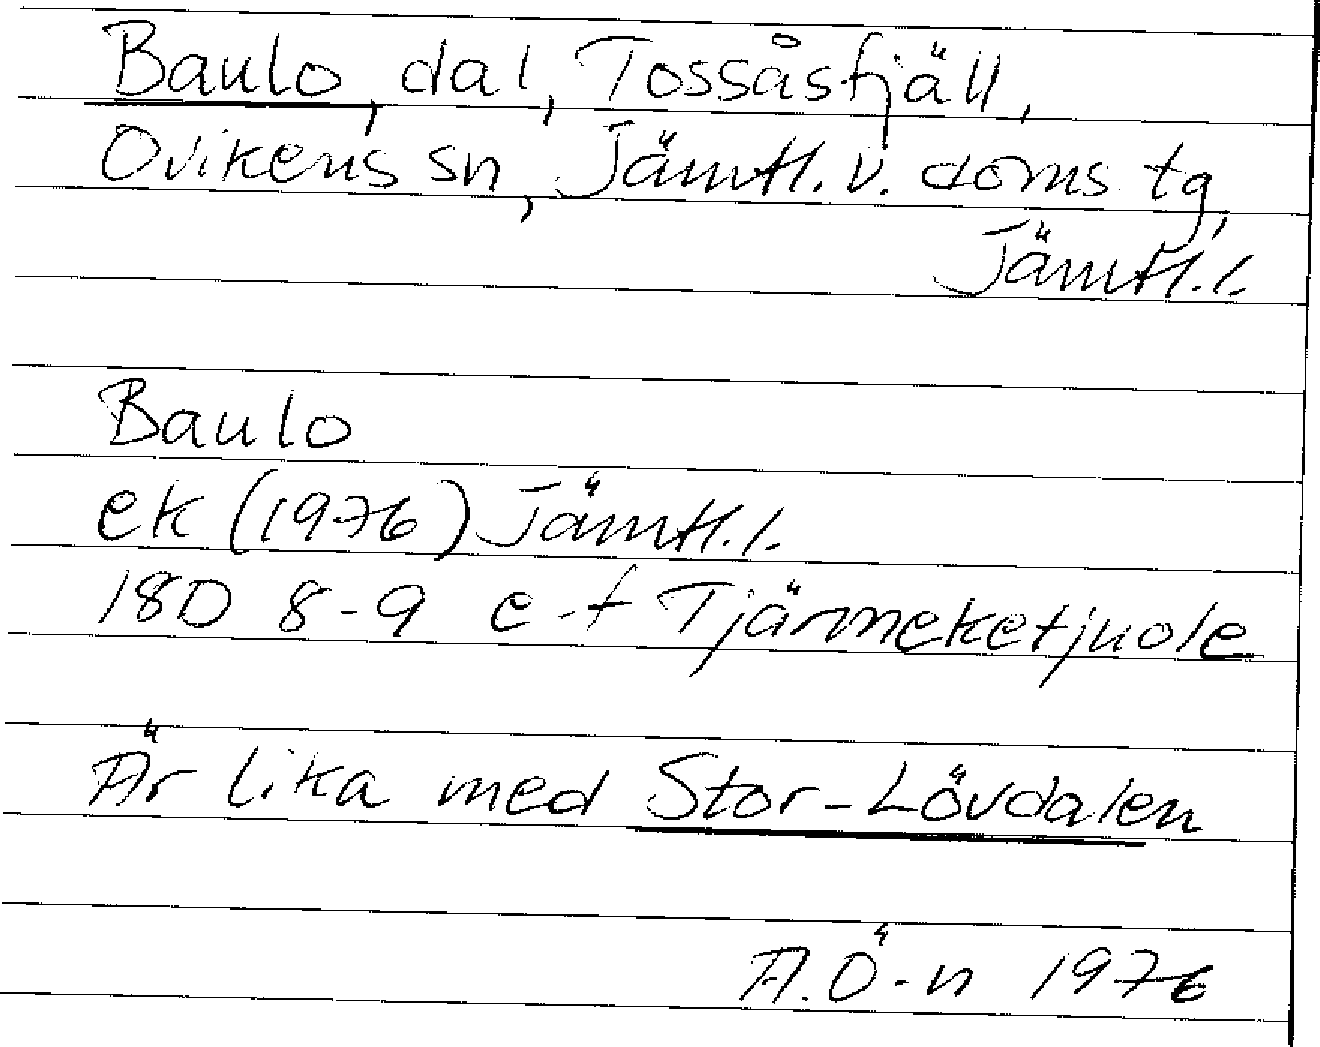 Baulo, dal, Tossåsfjäll,
Ovikens sn, Jämtl. v. doms tg,
Jämtl. l.
Baulo
ek (1976) Jämtl. l.
18D 8-9 e-f Tjärmeketjuole
Är lika med Stor-Lövdalen
A. Ö-n 1976